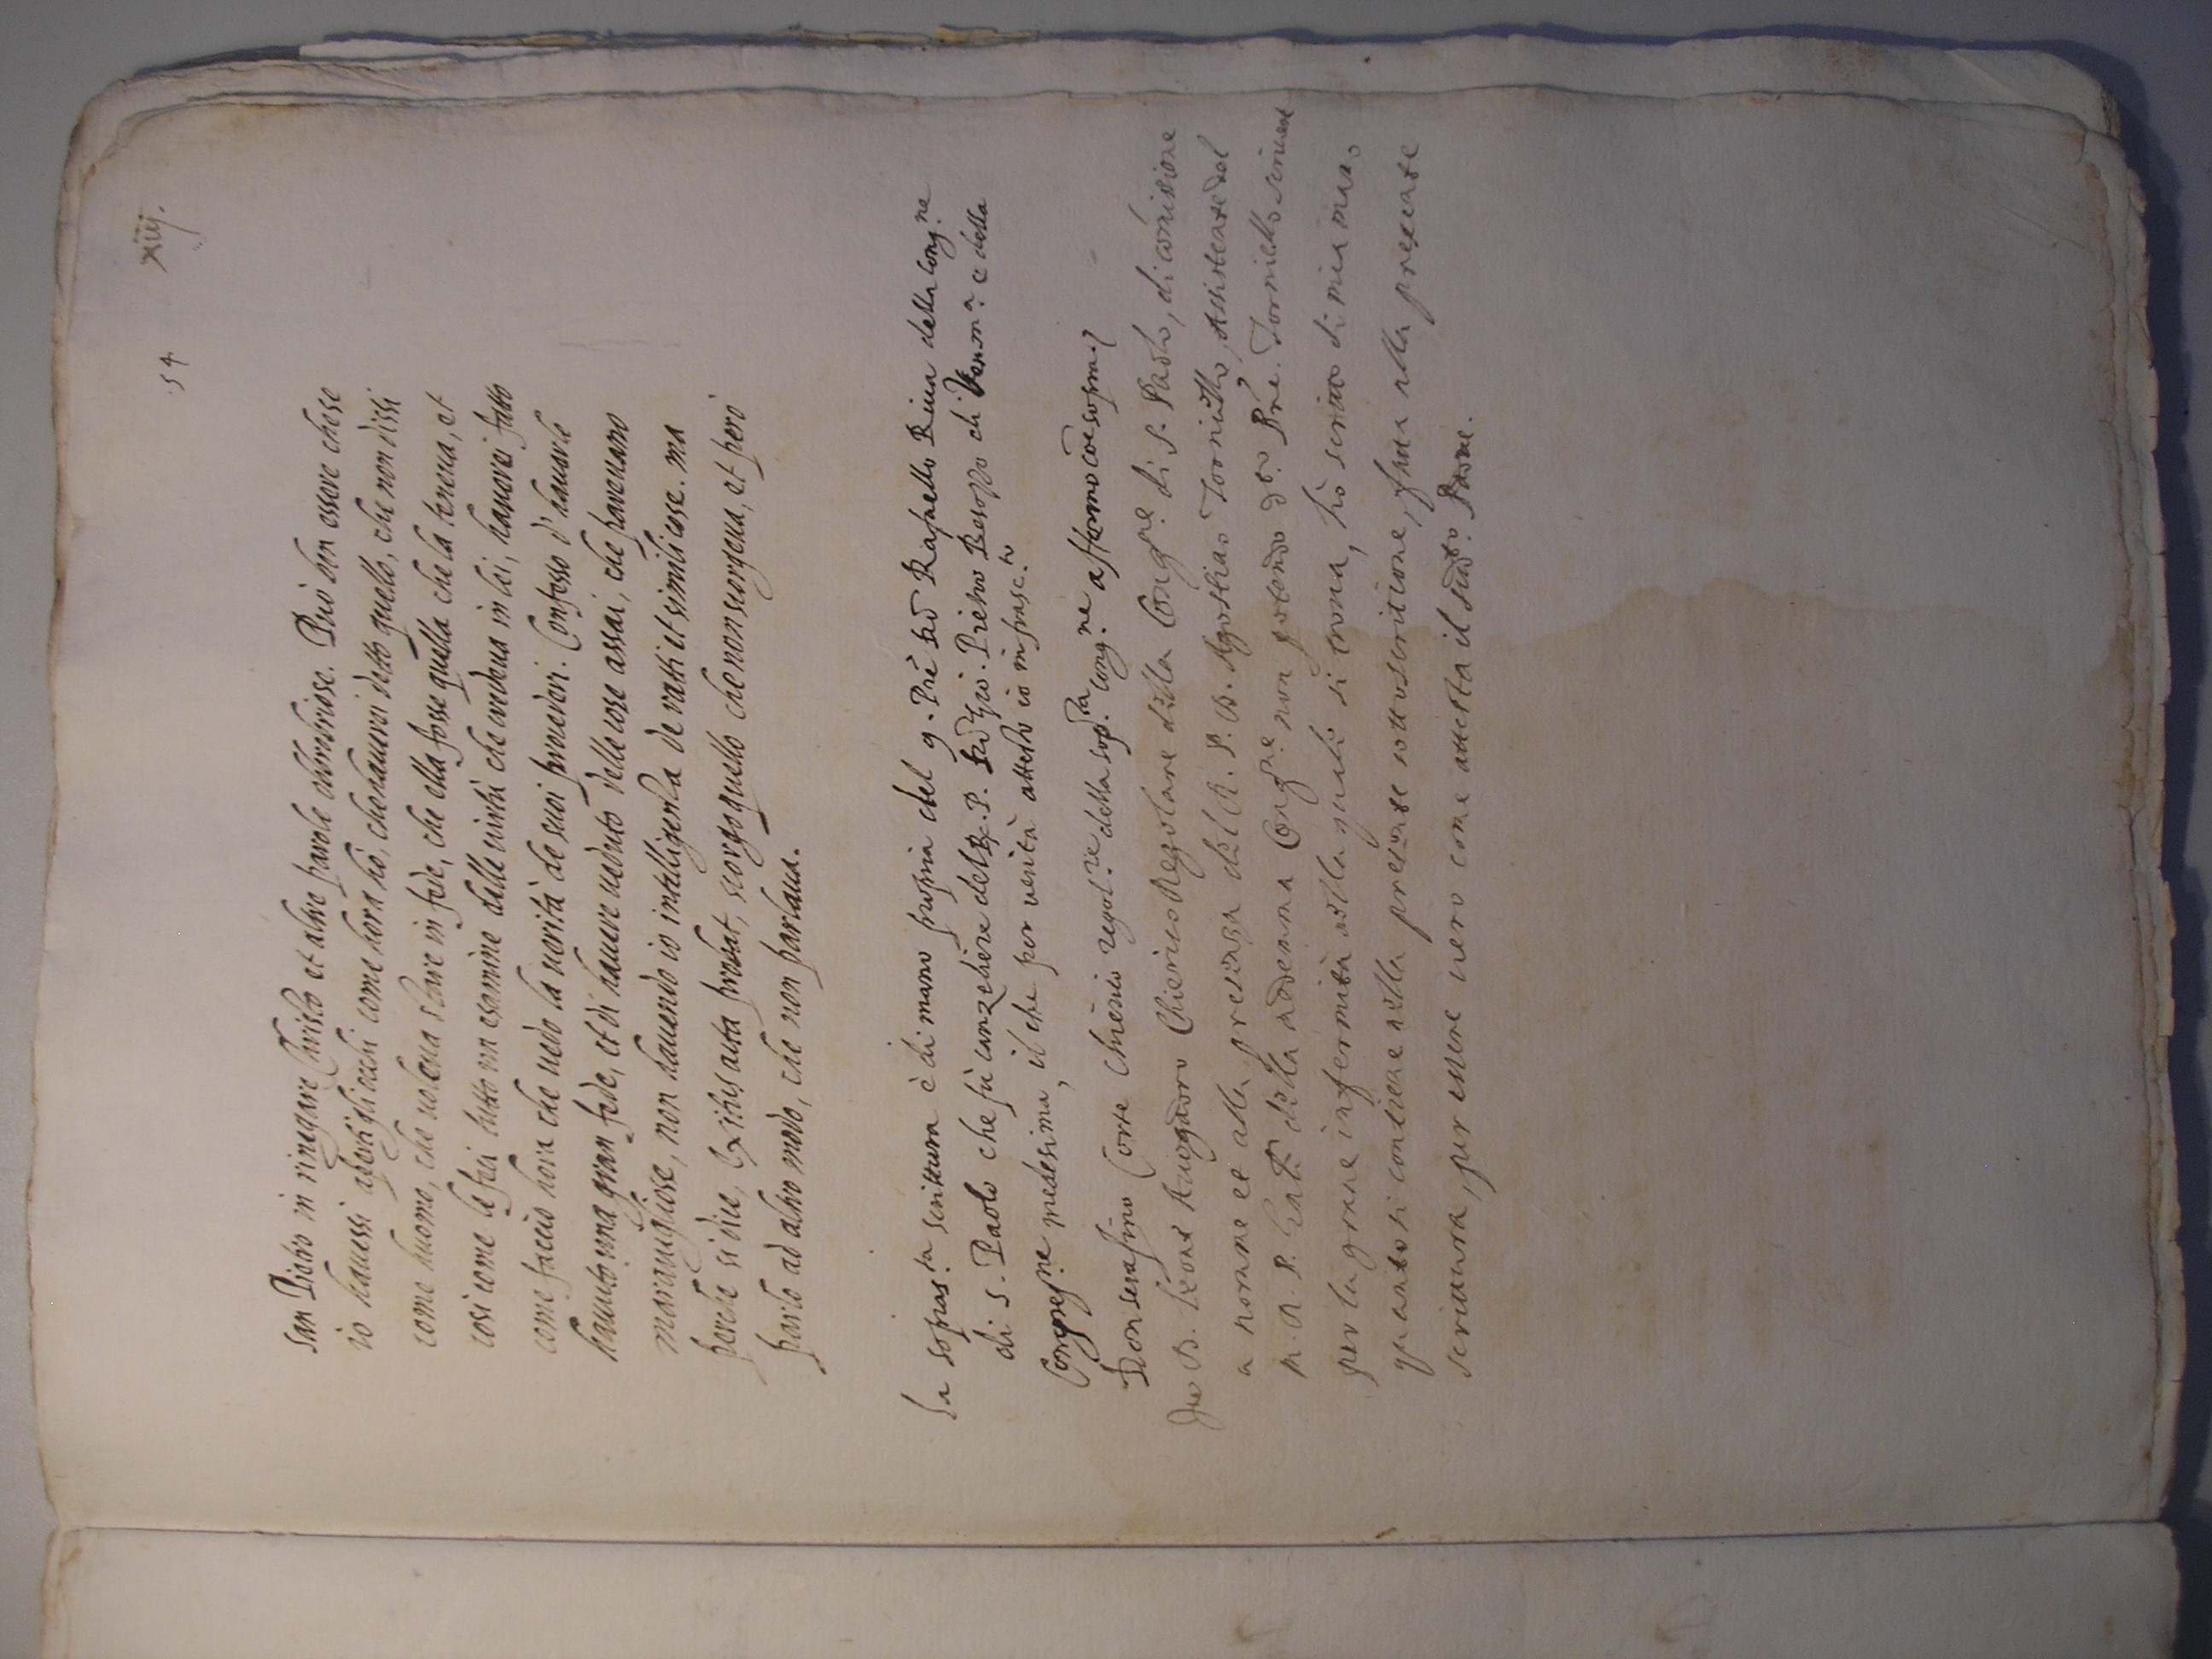 xiij.
54
san Pietro in rinegare Christo et altre parole obbrobriose. Può ben essere che se
io havessi aperti gli occhi come hora hò, che haverei detto quello, che non dissi
come huomo, che voleva stare in fede, che ella fosse quella che la teneva, et
cosi come le feci tutto un esamine delle virtù che credeva in lei, haverei fatto
come faccio hora che vedo la verità de suoi progressi. Confesso d'haverle
havuto una gran fede, et di havere veduto delle cose assai, che parevano
maravigliose, non havendo io intelligenza de ratti et simili cose. ma
perche si dice, Exitus acta probat, scorgo quello che non scorgeva, et però
parlo ad altro modo, che non parlava.
La sopras.ta scrittura è di mano propria del q. Prê Don Rafaello Riva della Cong.ne
di s. Paolo che fù canzeliere del R. P. Don Gio. Pietro Besozzo di bon. m.a e della
Congreg.ne medesima, il che per verità attesto io infrasc.to
Don serafino Corte Chierico regol.re della sop.ta cong.ne affermo cõe sopra.
Io D. Leone Avogadro Chierico Regolare della Cong.ne di S. Paolo, di cõmisione
a nome et alla presenza del R. P. D. Agostino Tornielli, Assistente del
M. R. P. G͞rale della medema Cong.ne non potendo d.to P͞re Tornielli scrivere
per la grave infermità nella quale si trova, hò scritto di mia mano
quanto si contiene nella presente sottoscrittione, fatta alla presente
scrittura, per essere vero come attesta il sud.to Padre.